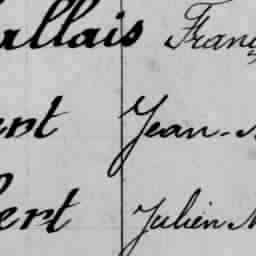 allais Franç
ert Jean-M
bert Julien M